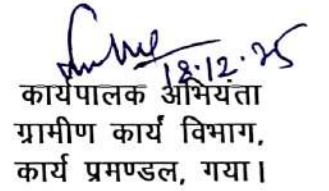 18.12.25
कार्यपालक अभियंता
ग्रामीण कार्य विभाग,
कार्य प्रमण्डल, गया।